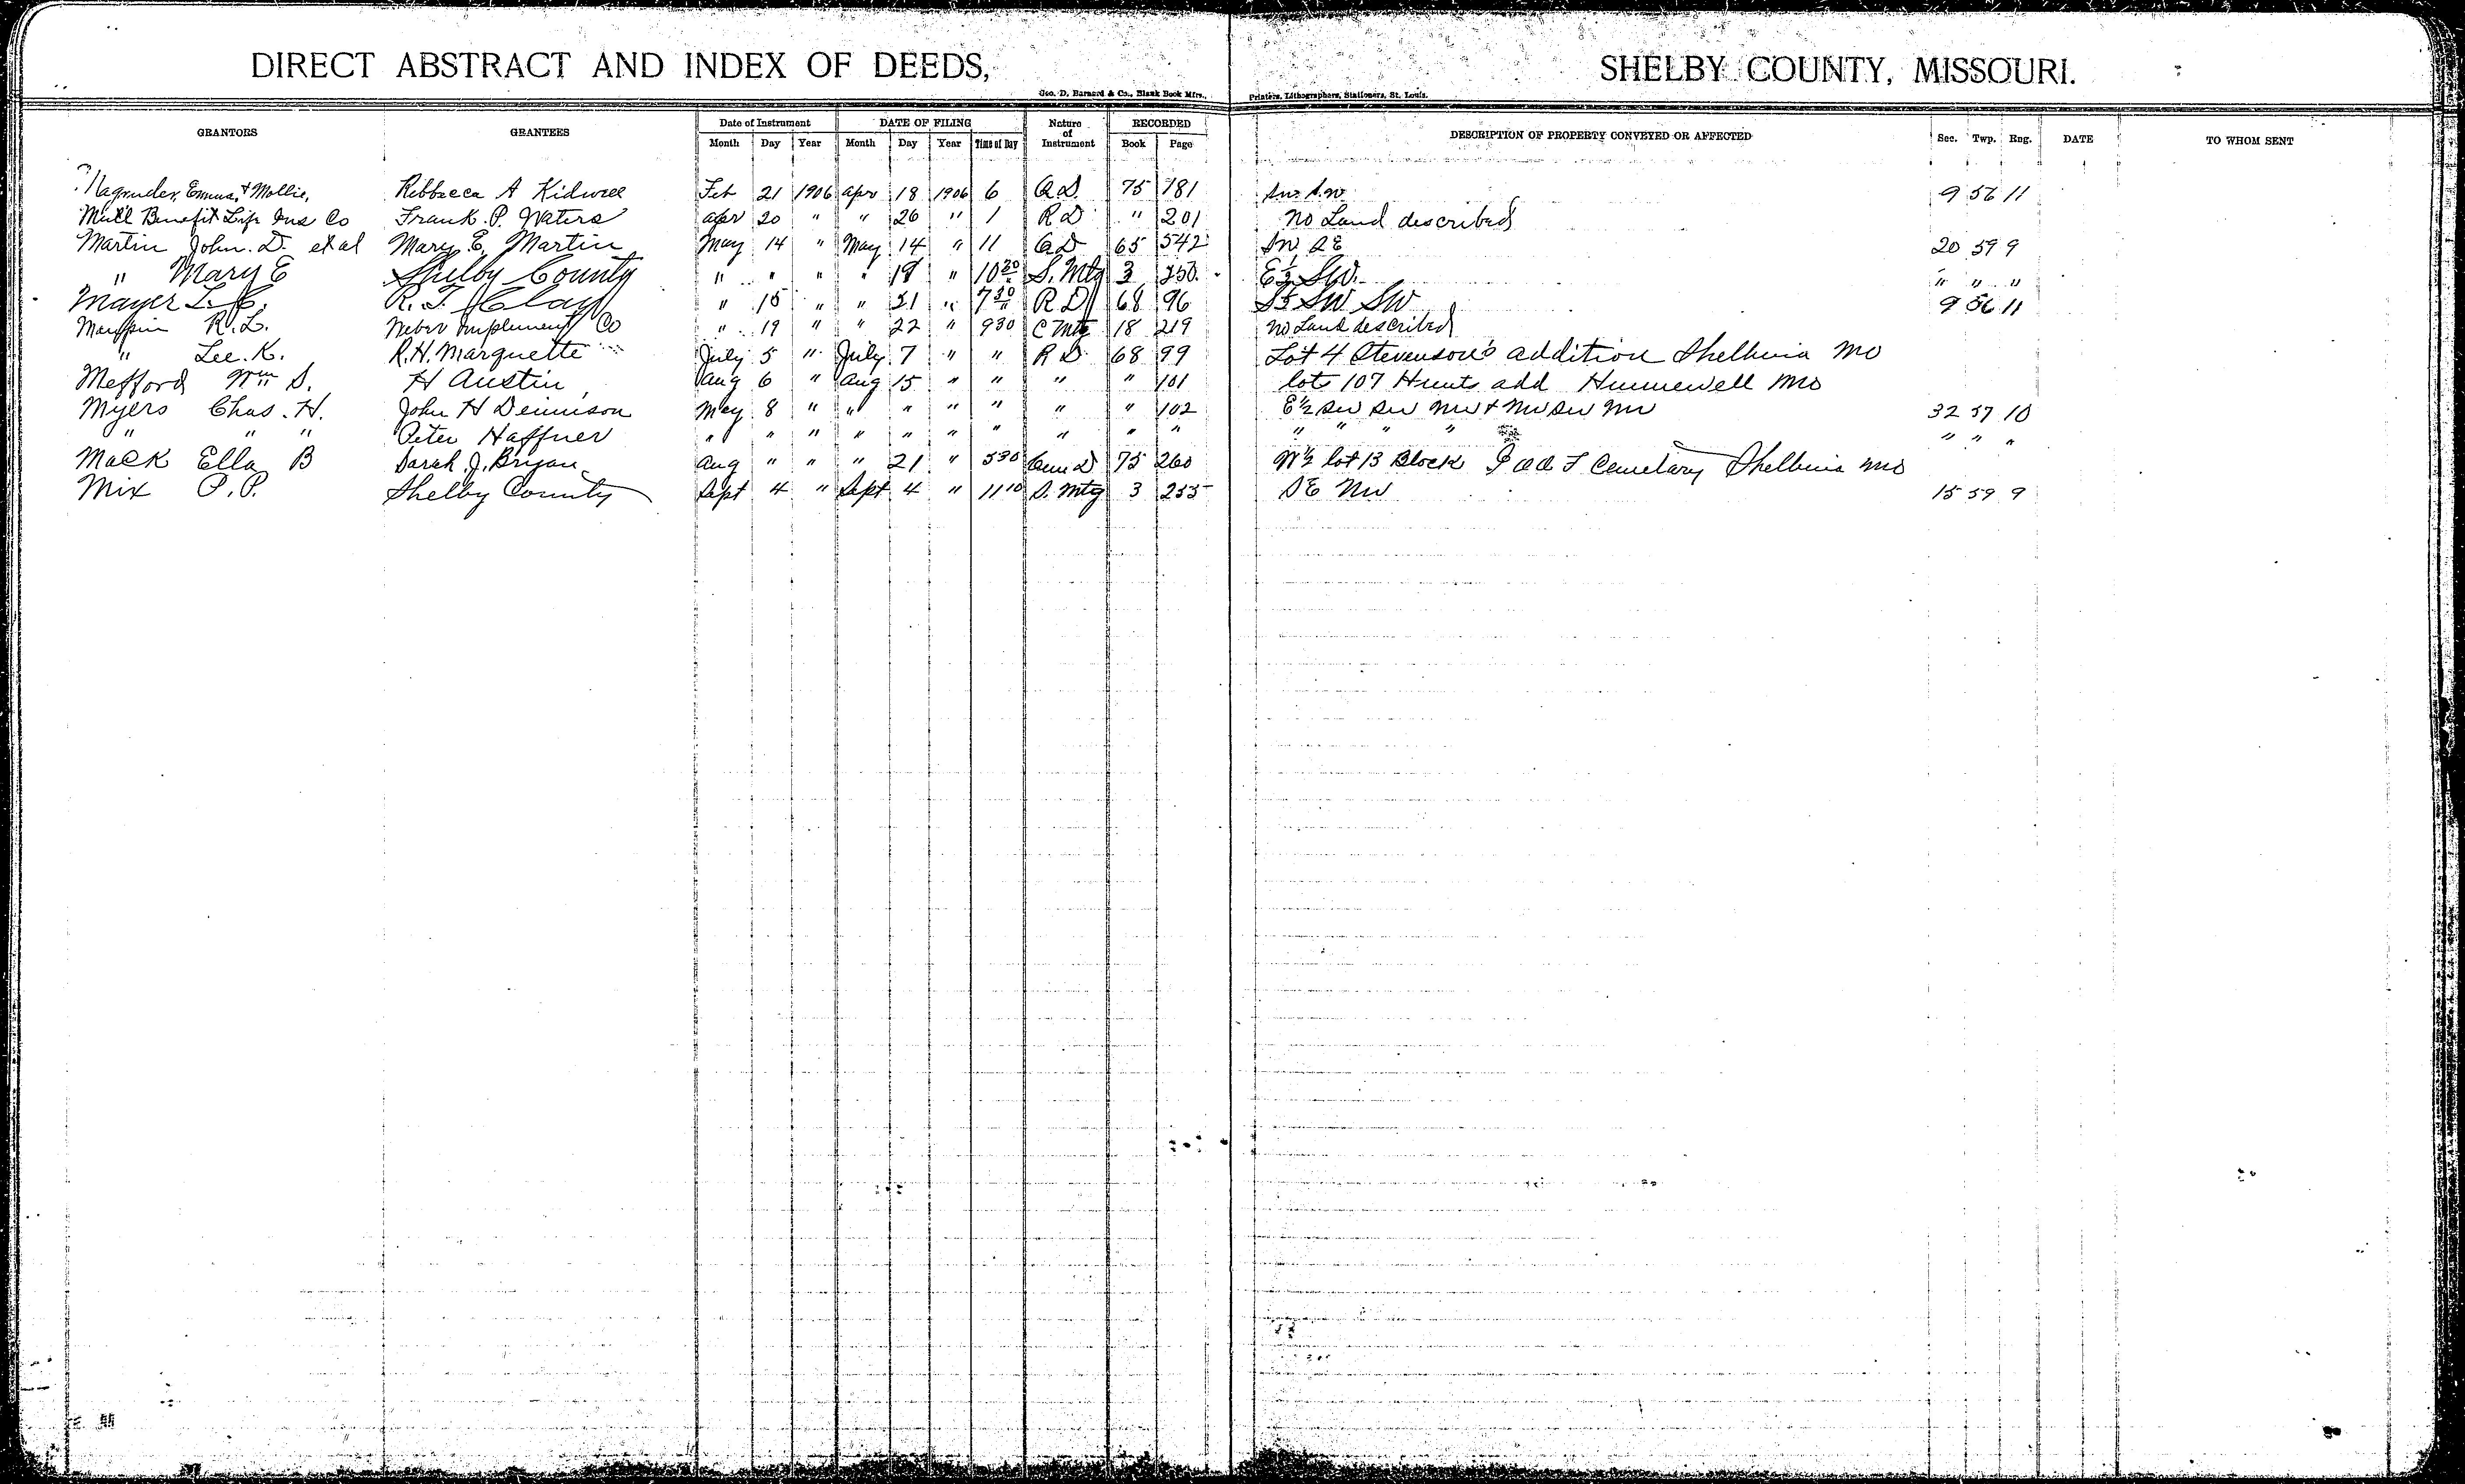 DIRECT ABSTRACT AND INDEX OF DEEDS, SHELBY COUNTY, MISSOURI.
Geo. D. Barnard & Co., Blank Book Mfrs., Printers, Lithographers, Stationers, St. Louis.
GRANTORS GRANTEES Date of Instrument DATE OF FILING Nature of Instrument RECORDED DESCRIPTION OF PROPERTY CONVEYED OR AFFECTED Sec. Twp. Rng. DATE TO WHOM SENT
Month Day Year Month Day Year Time of Day Book Page
Magruder, Emma, & Mollie, Ribbecca A Kidwell Feb 21 1906 Apr 18 1906 6 Q D 75 181 Sw. S.w. 9 56 11
Mut'l Benefit Life Ins Co Frank. P. Waters Apr 20 " " 26 " 1 R D " 201 No Land described
Martin John. D. et al Mary. E. Martin May 14 " May 14 " 11 Q D 65 542 SW SE 20 59 9
" Mary E Shelby County " " " " 18 " 10 30 S. Mtg 3 250 E 1/2 SW. " " "
Mayer L. C. R. T. Clay " 15 " " 21 " 7 30 R D 68 96 SW SW 9 56 11
Maupin R. L. Weber Implement Co " 19 " " 22 " 9 30 C Mtg 18 219 No Land described
" Lee. K. R. H. Marquette July 5 " July 7 " " R D 68 99 Lot 4 Stevenson's addition Shelbina Mo
Mefford Wm S. H Austin Aug 6 " Aug 15 " " " " 101 lots 107 Hunts add Hunnewell Mo
Myers Chas. H. John H Dennison May 8 " " " " " " " 102 E 1/2 Sw Sw Nw & Nw Sw Nw 32 57 10
" " " Peter Haffner " " " " " " " " " " " " " " " " "
Mack Ella B Sarah. J. Bryan Aug " " " 21 " 5 30 Cem D 75 260 W 1/2 lot 13 Block I O O F Cemetary Shelbina Mo
Mix P. P. Shelby County Sept 4 " Sept 4 " 11 10 S. Mtg 3 255 SE NW 15 59 9